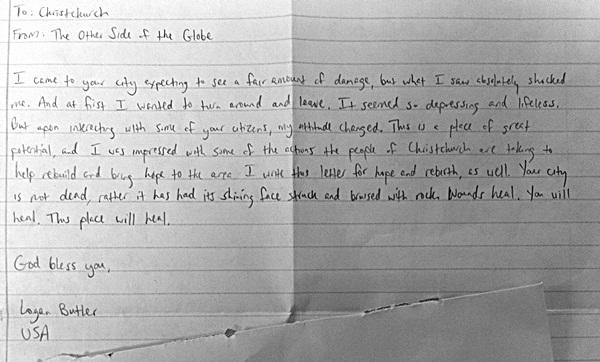 To: Christchurch
From: The Other Side of the Globe
I came to your city expecting to see a fair amount of damage, but what I saw absolutely shocked
me. And at first I wanted to turn around and leave. It seemed so depressing and lifeless.
But upon interacting with some of your citizens, my attitude changed. This is a place of great
potential, and I was impressed with some of the actions the people of Christchurch are taking to
help rebuild and bring hope to the area. I write this letter for hope and rebirth, as well. Your city
is not dead, rather it has had its shining face struck and bruised with rock. Wounds heal. You will
heal. This place will heal.
God bless you,
Logan Butler
USA